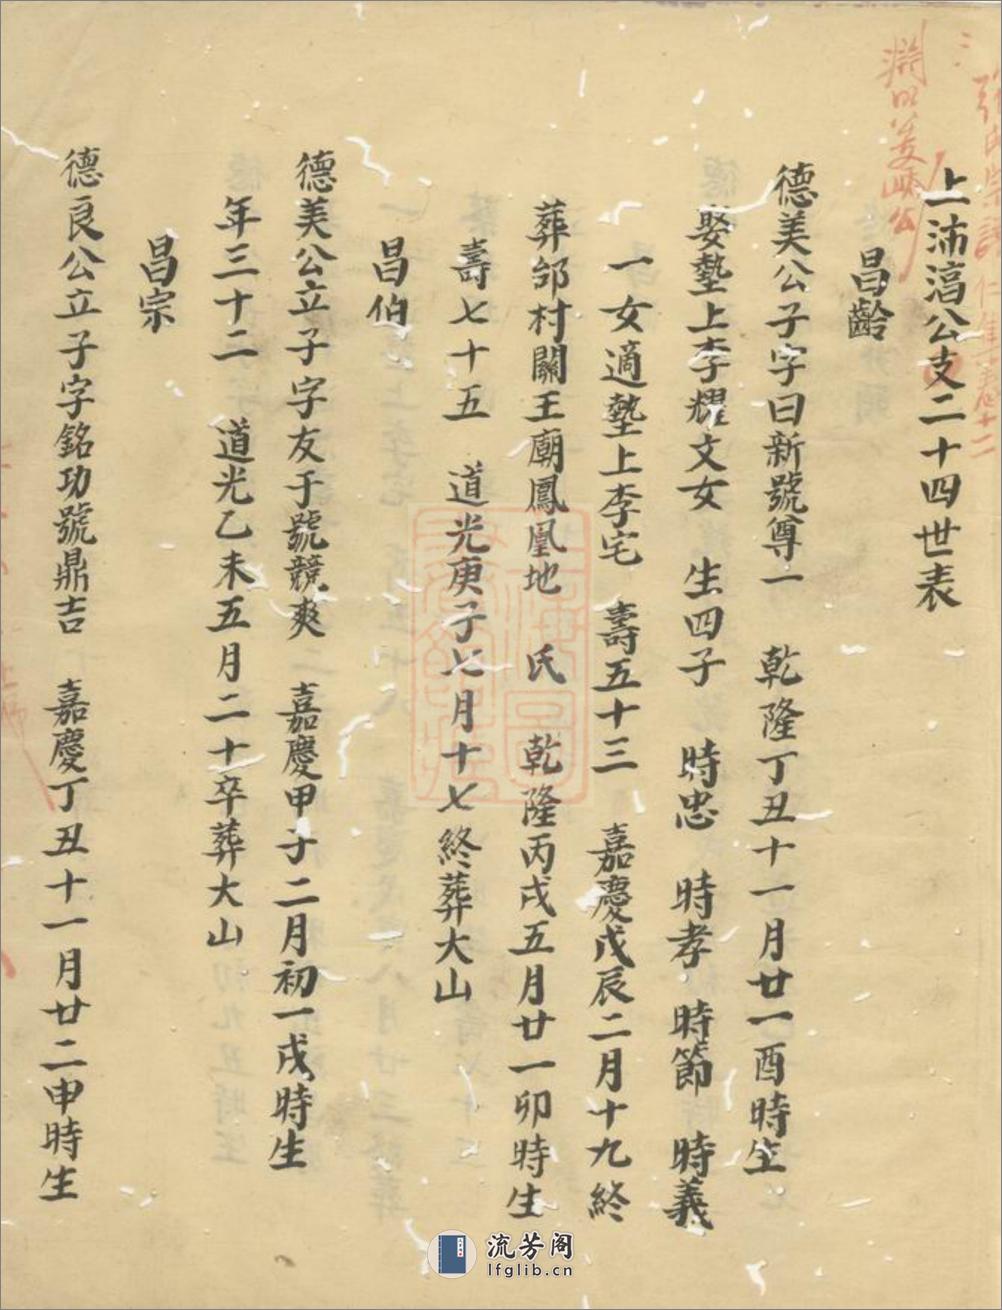 上沛滈公支二十四世表
昌齡
德美公子字曰新號尊一 乾隆丁丑十一月廿一酉時生
娶墊上李耀文女 生四子 時忠 時孝 時節 時義
一女適墊上李宅 壽五十三 嘉慶戊辰二月十九終
葬邰村關王廟鳳凰地 氏 乾隆丙戌五月廿一卯時生
壽七十五 道光庚子七月十七終葬大山
昌伯
德美公立子字友于號競爽 嘉慶甲子二月初一戌時生
年三十二 道光乙未五月二十卒葬大山
昌宗
德良公立子字銘功號鼎吉 嘉慶丁丑十一月廿二申時生
流芳阁
lfglib.cn